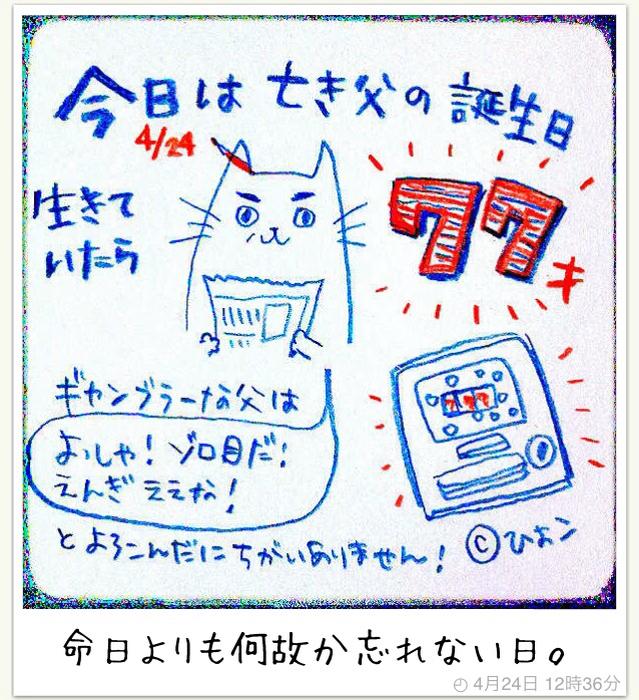 今日は 亡き父の誕生日
4/24
生きて
いたら
77才
ギャンブラーな父は
777
よっしゃ!ゾロ目だ!
えんぎ ええな!
とよろこんだにちがいありません!
©ひよこン
命日よりも何故か忘れない日。
4月24日 12時36分